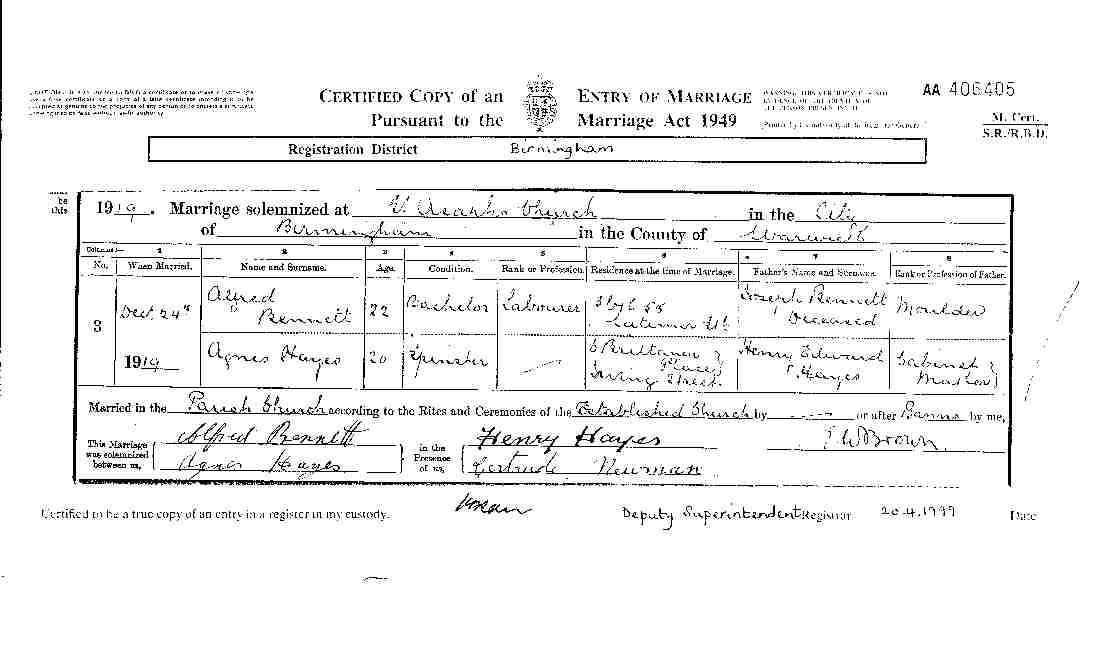 CERTIFIED COPY of an ENTRY OF MARRIAGE
AA 406405
Pursuant to the Marriage Act 1949
M. Cert.
S.R./R.B.D.
Registration District Birmingham
be
this
1919. Marriage solemnized at Church in the City
of Birmingham in the County of Warwick
Columns:— 1 2 3 4 5 6 7 8
No. When Married. Name and Surname. Age. Condition. Rank or Profession. Residence at the time of Marriage. Father's Name and Surname. Rank or Profession of Father.
3 Dec. 24th 1919
Alfred Bennett 22 Bachelor Labourer Latimer St Joseph Bennett Deceased Moulder
Agnes Hayes 20 Spinster — Place Irving Street. Henry Edward Hayes Cabinet Maker
Married in the Parish Church according to the Rites and Ceremonies of the Established Church by ---- or after Banns by me,
This Marriage was solemnized between us,
Alfred Bennett
Agnes Hayes
in the Presence of us,
Henry Hayes
Gertrude Newman
Brown
Certified to be a true copy of an entry in a register in my custody.
Deputy Superintendent Registrar 20.4.1999 Date